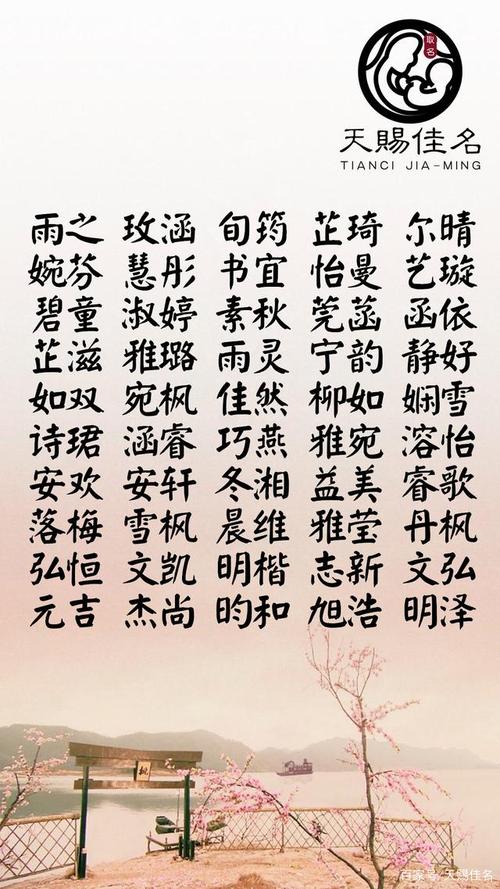 取名
天賜佳名
TIANCI JIA-MING
雨之 玫涵 旬筠 芷琦 尔晴
婉芬 慧彤 书宜 怡曼 艺璇
碧童 淑婷 素秋 莞菡 函依
芷滋 雅璐 雨灵 宁韵 静好
如双 宛枫 佳然 柳如 娴雪
诗珺 涵睿 巧燕 雅宛 溶怡
安欢 安轩 冬湘 益美 睿歌
落梅 雪枫 晨维 雅莹 丹枫
弘恒 文凯 明楷 志新 文弘
元吉 杰尚 昀和 旭浩 明泽
枫
百家号/天赐佳名